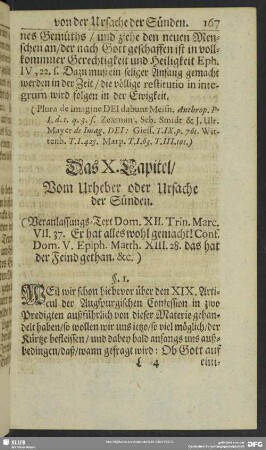 von der Ursache der Sünden. 167
nes Gemüths / und ziehe den neuen Men-
schen an/der nach Gott geschaffen ist in voll-
kommner Gerechtigkeit und Heiligkeit Eph.
IV, 22. s. Dazu muß ein seliger Anfang gemacht
werden in der Zeit / die völlige restitutio in inte-
grum wird folgen in der Ewigkeit.
( Plura de imagine DEI dabunt Meisn. Anthrop. P.
I, d. 1. q. 3. s. Zeæman, Seb. Smidt & J. Ulr.
Mayer de Imag. DEI: Giess. T. IX, p. 761. Wit-
tenb. T. I. 423. Marp. T. I. 63. T. III. 101.)
Das X. Capitel/
Vom Urheber oder Ursache
der Sünden.
(Veranlassungs-Text Dom. XII. Trin. Marc.
VII. 37. Er hat alles wohl gemacht! Conf.
Dom. V. Epiph. Matth. XIII. 28. das hat
der Feind gethan. &c. )
§. 1.
WEil wir schon hiebevor über den XIX. Arti-
cul der Augspurgischen Confession in zwo
Predigten außführlich von dieser Materie gehan-
delt haben/so wollen wir uns ietzo/so viel möglich/der
Kürtze befleissen / und dabey bald anfangs uns auß-
bedingen/daß/wann gefragt wird: Ob Gott auf
L 4 eini-